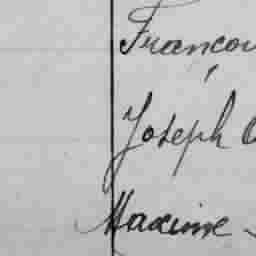 Françou
Joseph
Maxime